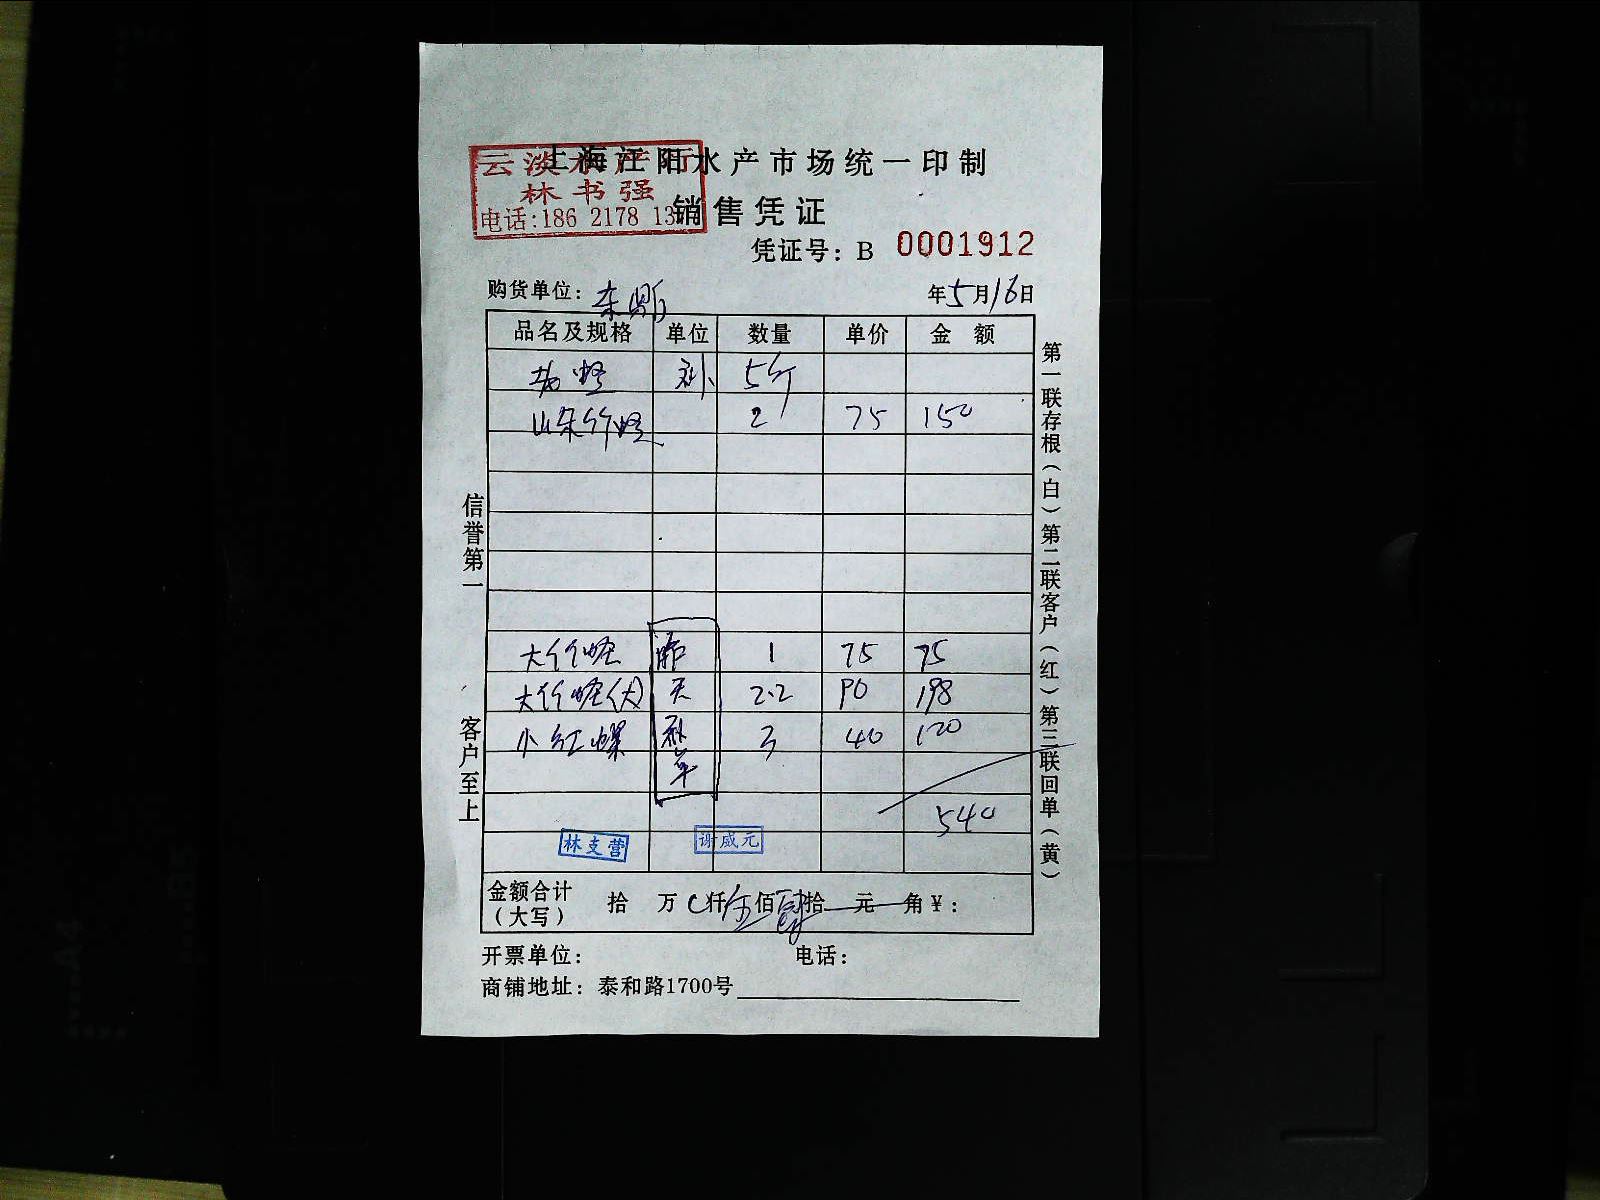 上海江阳水产市场统一印制
云淡水产行
林书强
电话:186 2178 13
销售凭证
凭证号: B 0001912
购货单位: 东
年5月16日
品名及规格 单位 数量 单价 金额
蛏 补 5斤
山东竹蛏 2 75 150
大竹蛏 昨 1 75 75
大竹蛏(大) 天 2.2 90 198
小红螺 补 3 40 120
单
540
林支营 谢咸元
金额合计
(大写) 拾 万 仟 伍 佰 肆 拾 元 角 ¥:
开票单位: 电话:
商铺地址: 泰和路1700号
信誉第一 客户至上
第一联存根(白)第二联客户(红)第三联回单(黄)